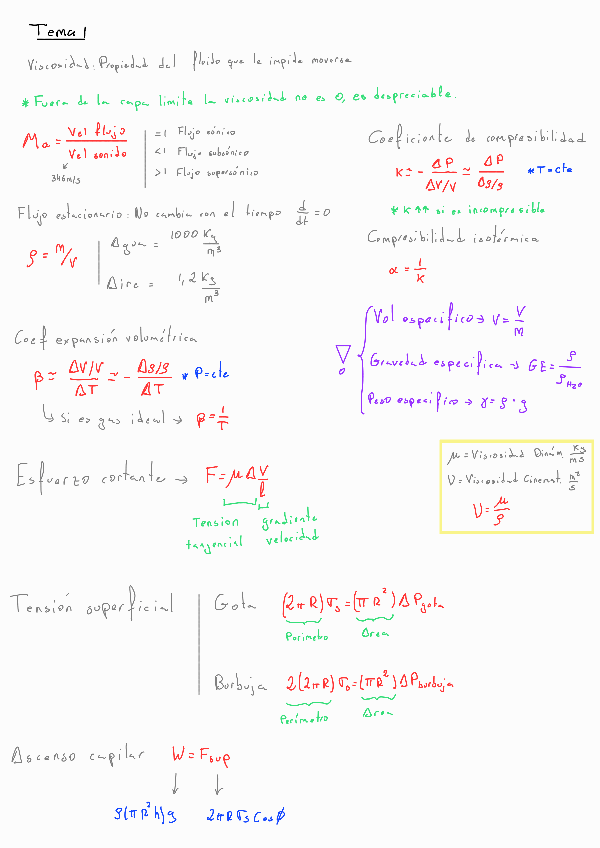 Tema 1
Viscosidad: Propiedad del fluido que le impide moverse
* Fuera de la capa limite la viscosidad no es 0, es despreciable.
Ma = Vel flujo / Vel sonido
346 m/s
=1 Flujo sónico
<1 Flujo subsónico
>1 Flujo supersónico
Coeficiente de compresibilidad
K ≃ - ΔP / ΔV/V ≃ ΔP / Δρ/ρ * T=cte
* K ↑↑ si es incompresible
Flujo estacionario: No cambia con el tiempo d/dt = 0
ρ = m/V
Agua = 1000 Kg/m³
Aire = 1,2 Kg/m³
Compresibilidad isotérmica
α = 1/K
Coef expansión volumétrica
β ≃ ΔV/V / ΔT ≃ - Δρ/ρ / ΔT * P=cte
↳ Si es gas ideal → β = 1/T
Vol especifico → v = V/m
Gravedad especifica → GE = ρ/ρH₂O
Peso especifico → γ = ρ · g
μ = Viscosidad Dinám. Kg/ms
ν = Viscosidad Cinemat. m²/s
ν = μ/ρ
Esfuerzo cortante → F = μ A V/l
Tension tangencial
gradiente velocidad
Tensión superficial
Gota (2πR)σs = (πR²)ΔPgota
Perimetro Area
Burbuja 2(2πR)σs = (πR²)ΔPburbuja
Perímetro Area
Ascenso capilar W = Fsup
ρ(πR²h)g 2πRσs Cosϕ